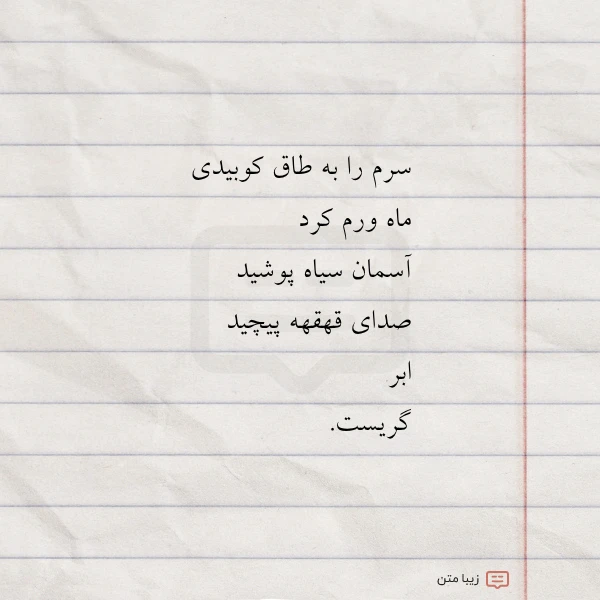 سرم را به طاق کوبیدی
ماه ورم کرد
آسمان سیاه پوشید
صدای قهقهه پیچید
ابر
گریست.
زیبا متن